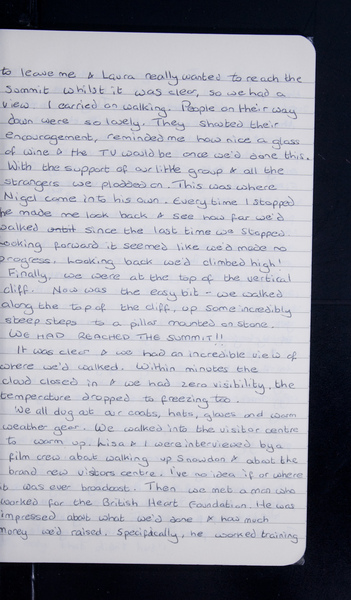 to leave me & Laura really wanted to reach the
summit whilst it was clear, so we had a
view. I carried on walking. People on their way
down were so lovely. They shouted their
encouragement, reminded me how nice a glass
of wine & the TV would be once we'd done this.
With the support of our little group & all the
strangers we plodded on. This was where
Nigel came into his own. Every time I stopped
he made me look back & see how far we'd
walked since the last time we stopped.
Looking forward it seemed like we'd made no
progress. Looking back we'd climbed high!
Finally, we were at the top of the vertical
cliff. Now was the easy bit - we walked
along the top of the cliff, up some incredibly
steep steps to a pillar mounted on stone.
WE HAD REACHED THE SUMMIT!!
It was clear & we had an incredible view of
where we'd walked. Within minutes the
cloud closed in & we had zero visibility, the
temperature dropped to freezing too.
We all dug at our coats, hats, gloves and warm
weather gear. We walked into the visitor centre
to warm up. Lisa & I were interviewed by a
film crew about walking up Snowdon & about the
brand new visitors centre. I've no idea if or where
it was ever broadcast. Then we met a man who
worked for the British Heart Foundation. He was
impressed about what we'd done & how much
money we'd raised. Specifically, he worked training